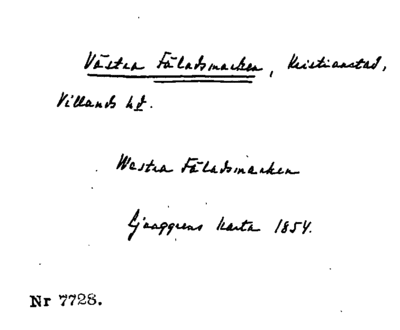 Västra Fäladsmarken, Kristianstad,
Villands hd.
Westra Fäladsmarken
Ljunggrens karta 1854.
Nr 7728.